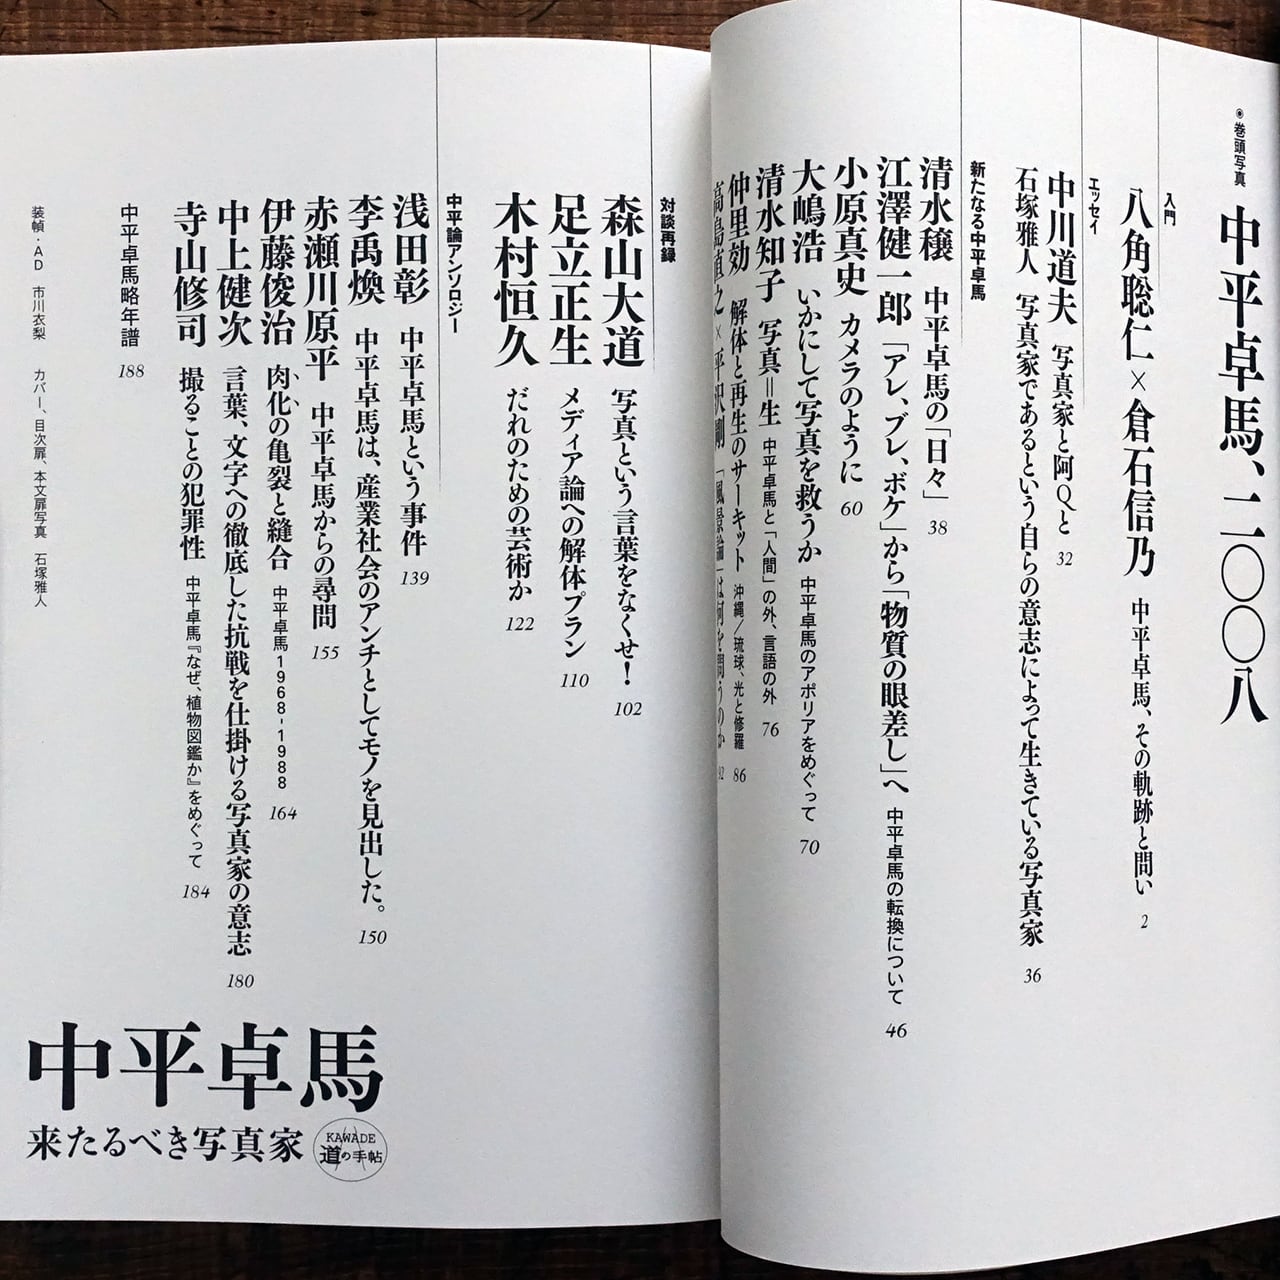 ◉巻頭写真 中平卓馬、二〇〇八
入門
八角聡仁×倉石信乃 中平卓馬、その軌跡と問い 2
エッセイ
中川道夫 写真家と阿Qと 32
石塚雅人 写真家であるという自らの意志によって生きている写真家 36
新たなる中平卓馬
清水穣 中平卓馬の「日々」 38
江澤健一郎 「アレ、ブレ、ボケ」から「物質の眼差し」へ 中平卓馬の転換について 46
小原真史 カメラのように 60
大嶋浩 いかにして写真を救うか 中平卓馬のアポリアをめぐって 70
清水知子 写真=生 中平卓馬と「人間」の外、言語の外 76
仲里効 解体と再生のサーキット 沖縄/琉球、光と修羅 86
高島直之×平沢剛 「風景論」は何を問うのか 92
対談再録
森山大道 写真という言葉をなくせ! 102
足立正生 メディア論への解体プラン 110
木村恒久 だれのための芸術か 122
中平論アンソロジー
浅田彰 中平卓馬という事件 139
李禹煥 中平卓馬は、産業社会のアンチとしてモノを見出した。 150
赤瀬川原平 中平卓馬からの尋問 155
伊藤俊治 肉化の亀裂と縫合 中平卓馬1968-1988 164
中上健次 言葉、文字への徹底した抗戦を仕掛ける写真家の意志 180
寺山修司 撮ることの犯罪性 中平卓馬『なぜ、植物図鑑か』をめぐって 184
中平卓馬略年譜 188
装幀・AD 市川衣梨 カバー、目次扉、本文扉写真 石塚雅人
中平卓馬
来たるべき写真家
KAWADE
道の手帖